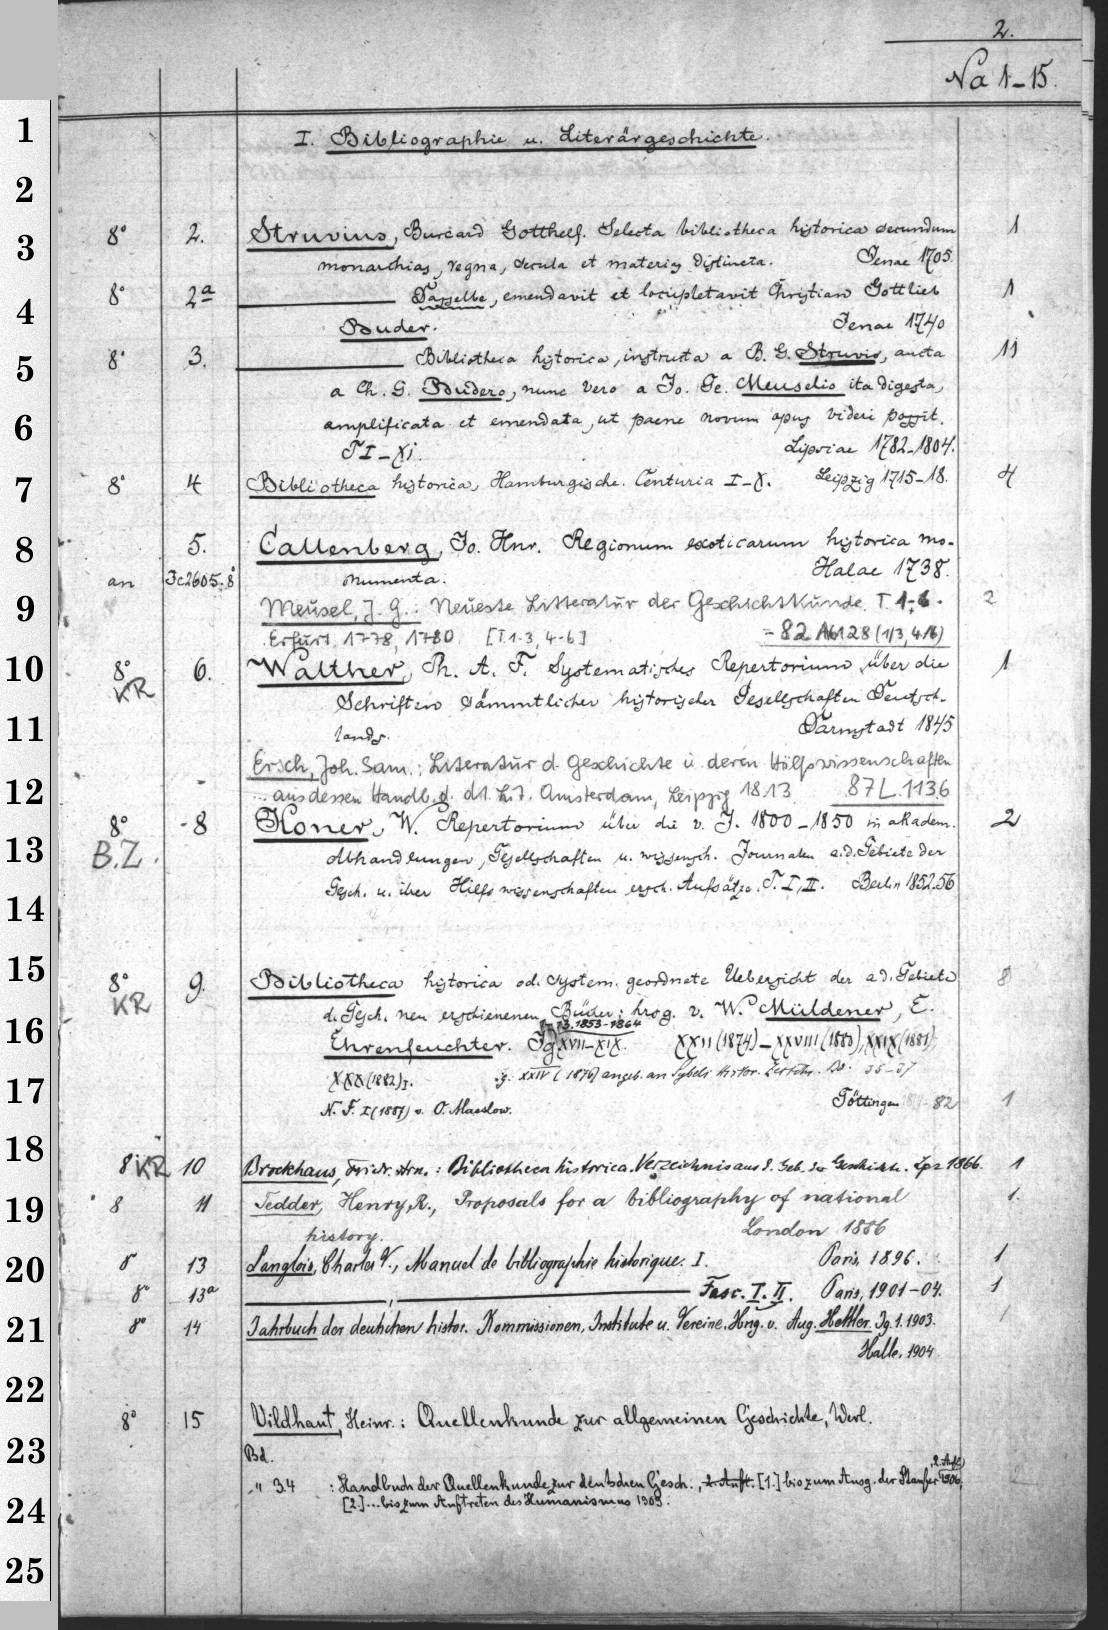 2.
Na 1-15.
1 I. Bibliographie u. Literärgeschichte.
2
3 8° 2. Struvius, Burcard Gotthelf. Selecta bibliotheca historica secundum 1
monarchias, regna, secula et materias distincta. Jenae 1705.
4 8° 2a Dasselbe, emendavit et locupletavit Christian Gottlieb 1
Buder. Jenae 1740
5 8° 3. Bibliotheca historica, instructa a B. G. Struvio, aucta 11
a Ch. G. Budero, nunc vero a Jo. Ge. Meuselio ita digesta,
6 amplificata et emendata, ut paene novum opus videri possit.
T I-XI. Lipsiae 1782-1804.
7 8° 4 Bibliotheca historica, Hamburgische. Centuria I-X. Leipzig 1715-18. 4
8 5. Callenberg, Jo. Hnr. Regionum exoticarum historica mo-
an Jc2605.8° numenta. Halae 1738.
9 Meusel, J. G.: Neueste Litteratur der Geschichtkunde. T 1-6. 2
Erfurt, 1778, 1780. [T.1-3, 4-6] = 82 A 6128 (1/3, 4/6)
10 8° 6. Walther, Ph. A. F. Systematisches Repertorium über die 1
KR Schriften sämmtlicher historischer Gesellschaften Deutsch-
11 lands. Darmstadt 1845
Ersch, Joh. Sam.: Literatur d. Geschichte u. deren Hülfswissenschaften
12 ... aus dessen Handb. d. dt. Lit. Amsterdam, Leipzig 1813. 87 L. 1136
8° -8 Koner, W. Repertorium über die v. J. 1800-1850 in akadem. 2
13 B.Z. Abhandlungen, Gesellschaften u. wissensch. Journalen a. d. Gebiete der
Gesch. u. ihrer Hilfswissenschaften ersch. Aufsätze. T. I, II. Berlin 1852.56
14
15 8° 9. Bibliotheca historica od. system. geordnete Uebersicht der a d. Gebiete 8
KR d. Gesch. neu erschienenen Bücher: hrsg. v. W. Müldener, E.
1-13. 1853-1864
16 Ehrenfeuchter. Jg XVII-XIX. XXII (1874)-XXVIII (1880), XXIX (1881),
XXX (1882) I. J. XXIV (1876) angeb. an Sybels Histor. Zeitschr. Bd. 35-37
17 N. F. I (1887) v. O. Masslow. Göttingen 82 1
18 8° KR 10 Brockhaus, Fridr. Arn.: Bibliotheca historica. Verzeichnis aus d. Geb. der Geschichte. Lpz 1866. 1
19 8 11 Tedder, Henry, R., Proposals for a bibliography of national 1.
history. London 1886
20 8° 13 Langlois, Charles V., Manuel de bibliographie historique. I. Paris, 1896. 1
8° 13a Fasc. I. II. Paris, 1901-04. 1
21 8° 14 Jahrbuch der deutschen histor. Kommissionen, Institute u. Vereine. Hrsg. v. Aug. Hettler. Jg. 1. 1903. 1
Halle, 1904
22
8° 15 Vildhaut, Heinr.: Quellenkunde zur allgemeinen Geschichte, Werl.
23 Bd.
2. Aufl.
" 34 : Handbuch der Quellenkunde zur deutschen Gesch., 2. Aufl. [1.] bis zum Ausg. der Staufer 1906,
24 [2.] ... bis zum Auftreten des Humanismus 1909.
25